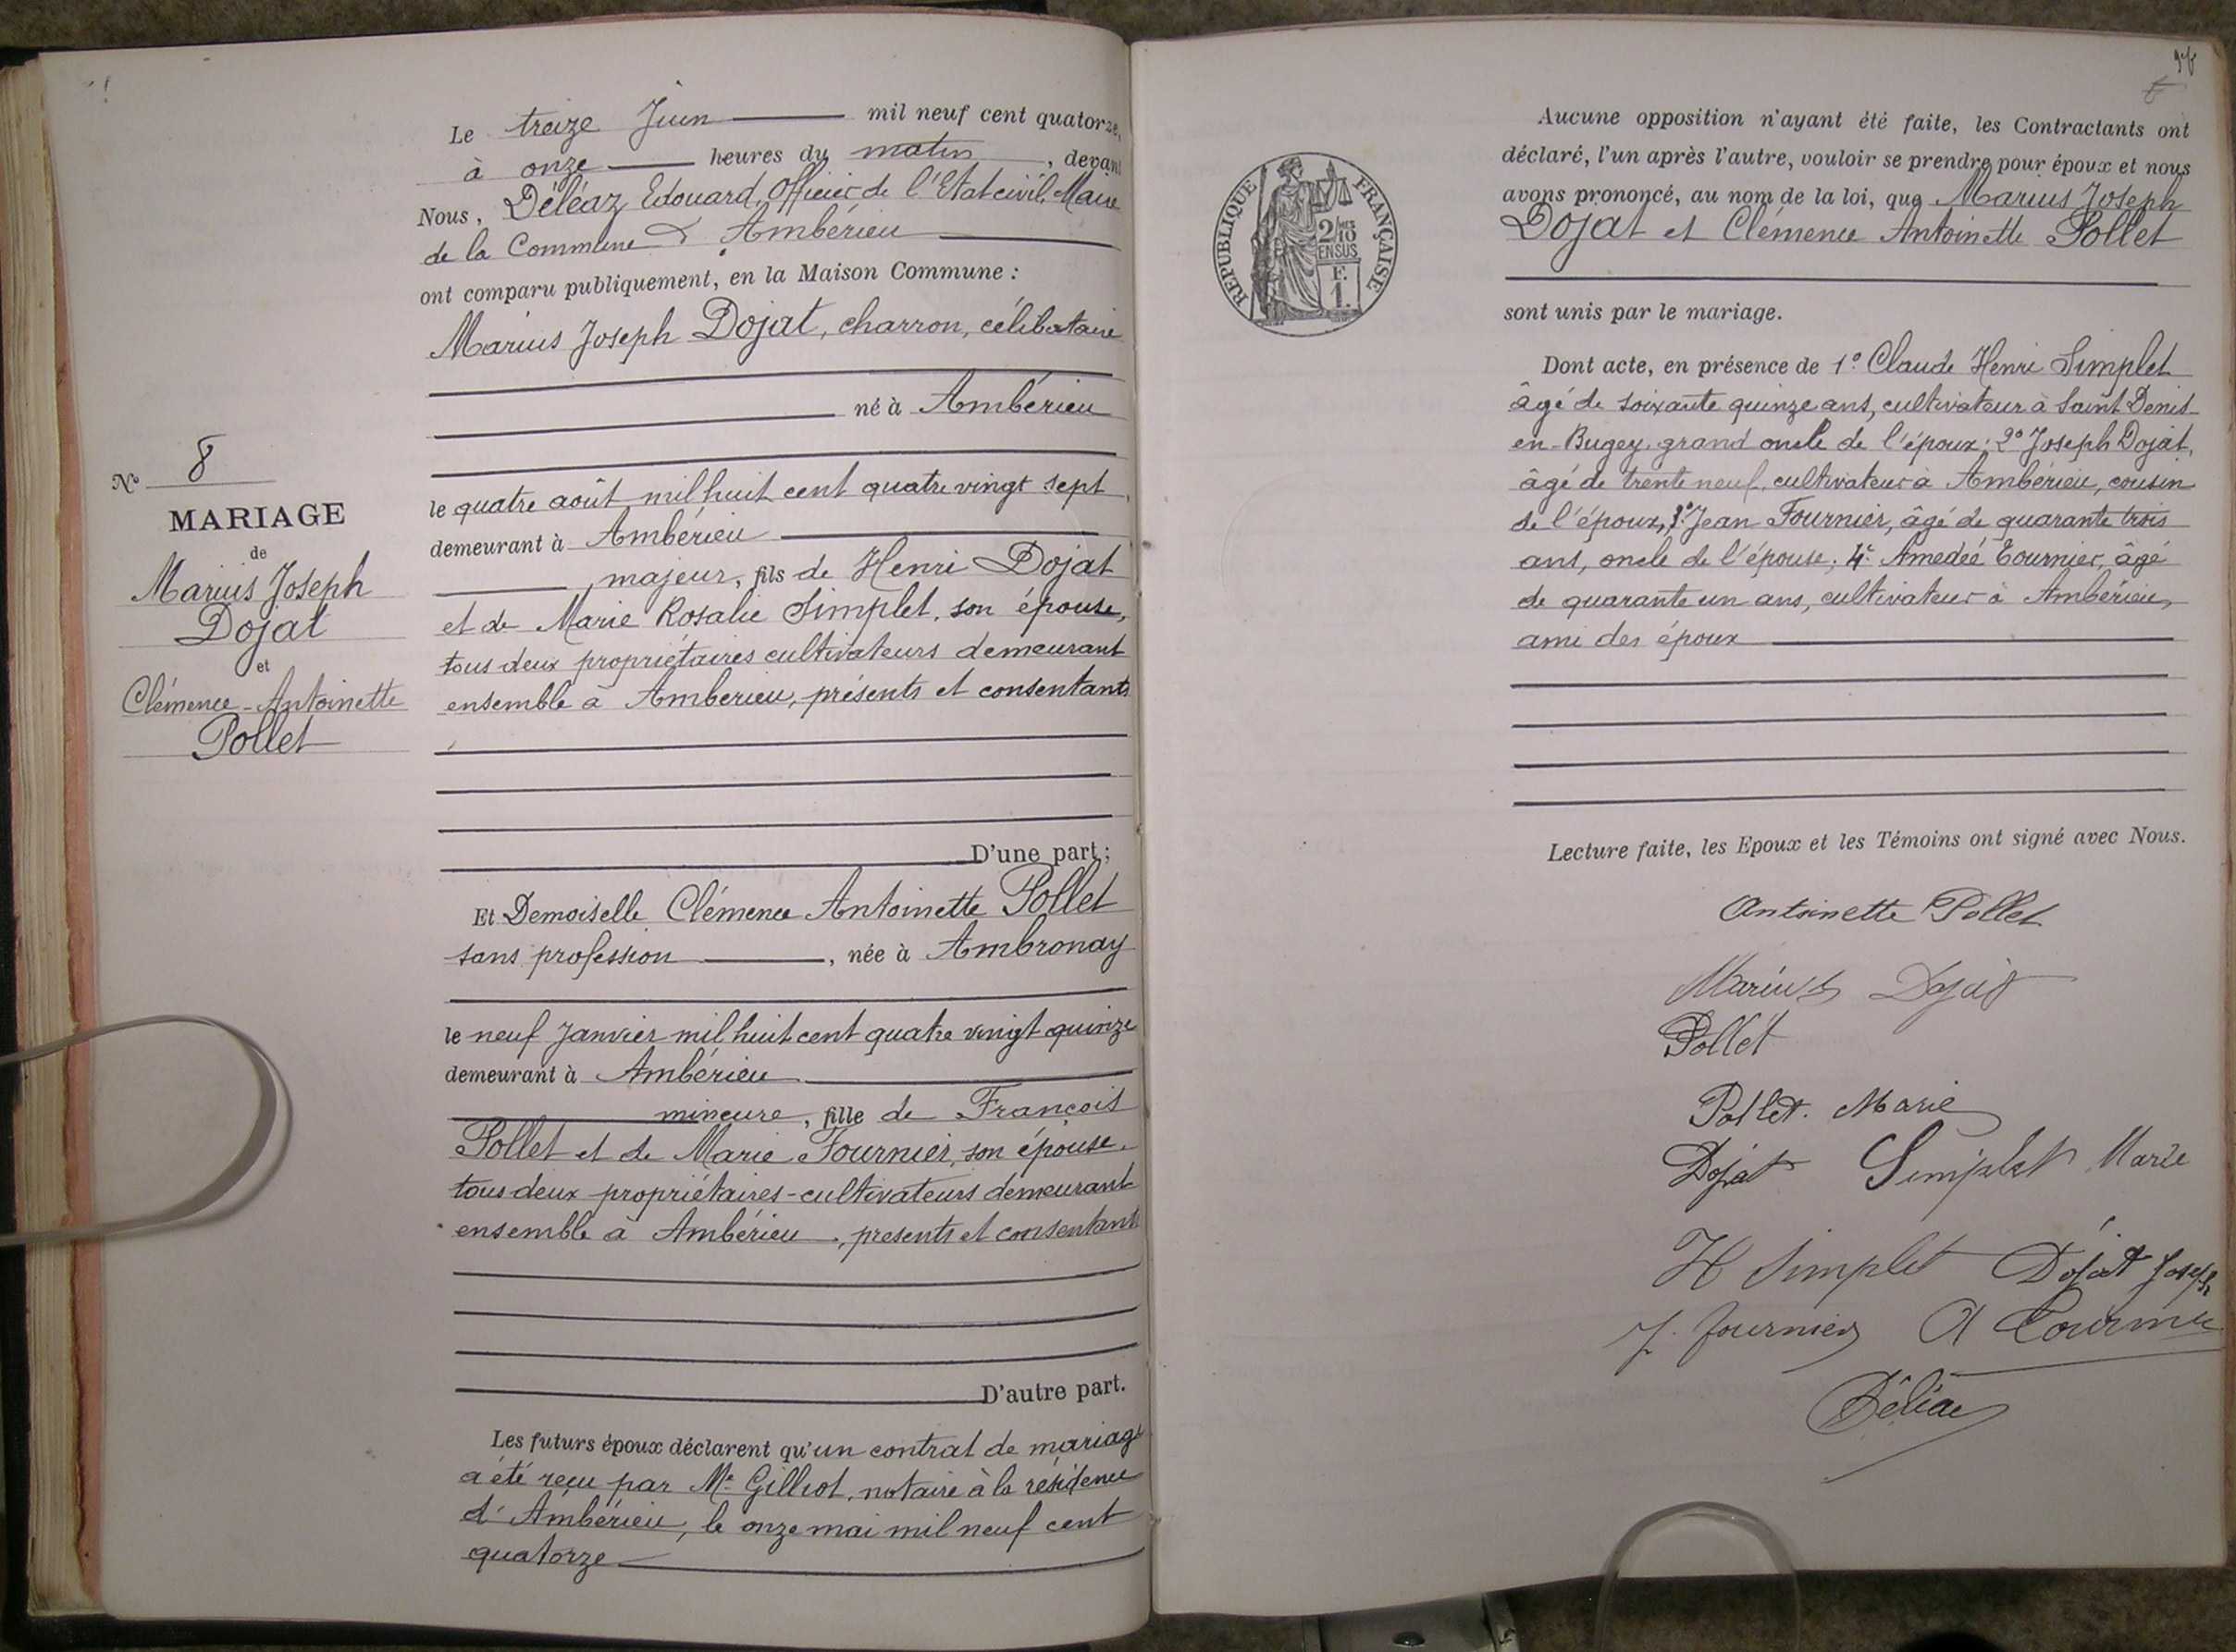 Le treize Juin mil neuf cent quatorze,
à onze heures du matin, devant
Nous, Déléaz Edouard, Officier de l'Etat civil, Maire
de la Commune d'Ambérieu
ont comparu publiquement, en la Maison Commune :
Marius Joseph Dojat, charron, célibataire
né à Ambérieu
le quatre août mil huit cent quatre vingt sept,
demeurant à Ambérieu
majeur, fils de Henri Dojat
et de Marie Rosalie Simplet, son épouse,
tous deux propriétaires cultivateurs demeurant
ensemble à Amberieu, présents et consentants
D'une part ;
Et Demoiselle Clémence Antoinette Pollet
sans profession, née à Ambronay
le neuf Janvier mil huit cent quatre vingt quinze
demeurant à Ambérieu
mineure, fille de François
Pollet et de Marie Fournier, son épouse.
tous deux propriétaires-cultivateurs demeurant
ensemble à Ambérieu, presents et consentants
D'autre part.
Les futurs époux déclarent qu'un contrat de mariage
a été reçu par Me Gilliot, notaire à la résidence
d'Ambérieu, le onze mai mil neuf cent
quatorze
No 8
MARIAGE
de
Marius Joseph
Dojat
et
Clémence-Antoinette
Pollet
REPUBLIQUE FRANÇAISE
2/10
EN SUS
F.
1.
Aucune opposition n'ayant été faite, les Contractants ont
déclaré, l'un après l'autre, vouloir se prendre pour époux et nous
avons prononcé, au nom de la loi, que Marius Joseph
Dojat et Clémence Antoinette Pollet
sont unis par le mariage.
Dont acte, en présence de 1° Claude Henri Simplet
âgé de soixante quinze ans, cultivateur à Saint Denis-
en-Bugey, grand oncle de l'époux; 2° Joseph Dojat,
âgé de trente neuf, cultivateur à Ambérieu, cousin
de l'époux, 3° Jean Fournier, âgé de quarante trois
ans, oncle de l'épouse; 4° Amedée Tournier, âgé
de quarante un ans, cultivateur à Ambérieu,
ami des époux
Lecture faite, les Epoux et les Témoins ont signé avec Nous.
Antoinette Pollet
Marius Dojat
Pollet
Pollet Marie
Dojat Simplet Marie
H Simplet Dojat Joseph
J. Fournier A Tournier
Déléaz